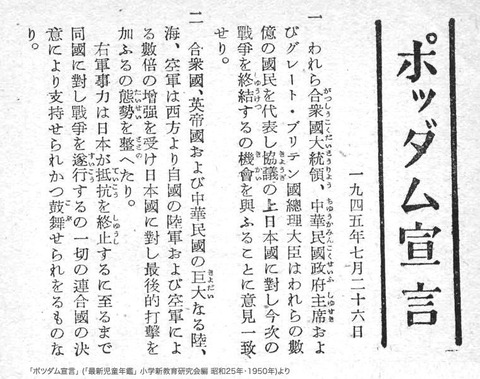 ポツダム宣言
一九四五年七月二十六日
一 われら合衆國大統領、中華民國政府主席およ
びグレート・ブリテン國總理大臣はわれらの數
億の國民を代表し協議の上日本國に對し今次の
戰爭を終結するの機會を與ふることに意見一致
せり。
二 合衆國、英帝國および中華民國の巨大なる陸、
海、空軍は西方より自國の陸軍および空軍によ
る數倍の增强を受け日本國に對し最後的打擊を
加ふるの態勢を整へたり。
右軍事力は日本が抵抗を終止するに至るまで
同國に對し戰爭を遂行するの一切の連合國の決
意により支持せられかつ鼓舞せられをるものな
り。
「ポツダム宣言」(「最新児童年鑑」小学新教育研究会編 昭和25年・1950年)より